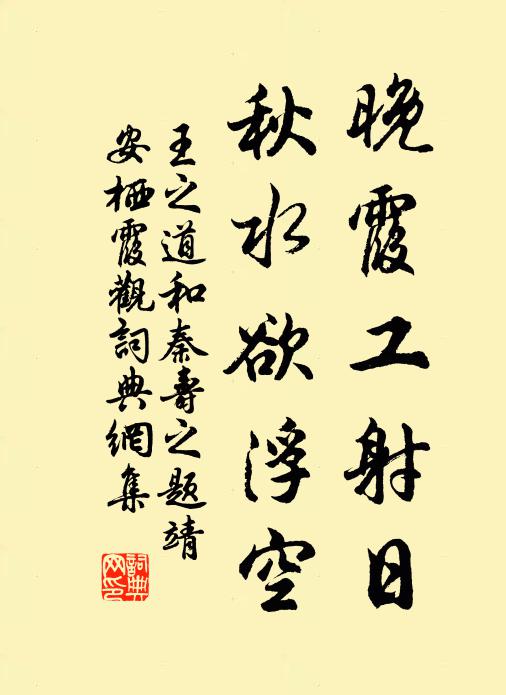 晚霞工射日
秋水欲浮空
王之道和秦壽之題靖
安栖霞觀詞典網集
詞典
网印